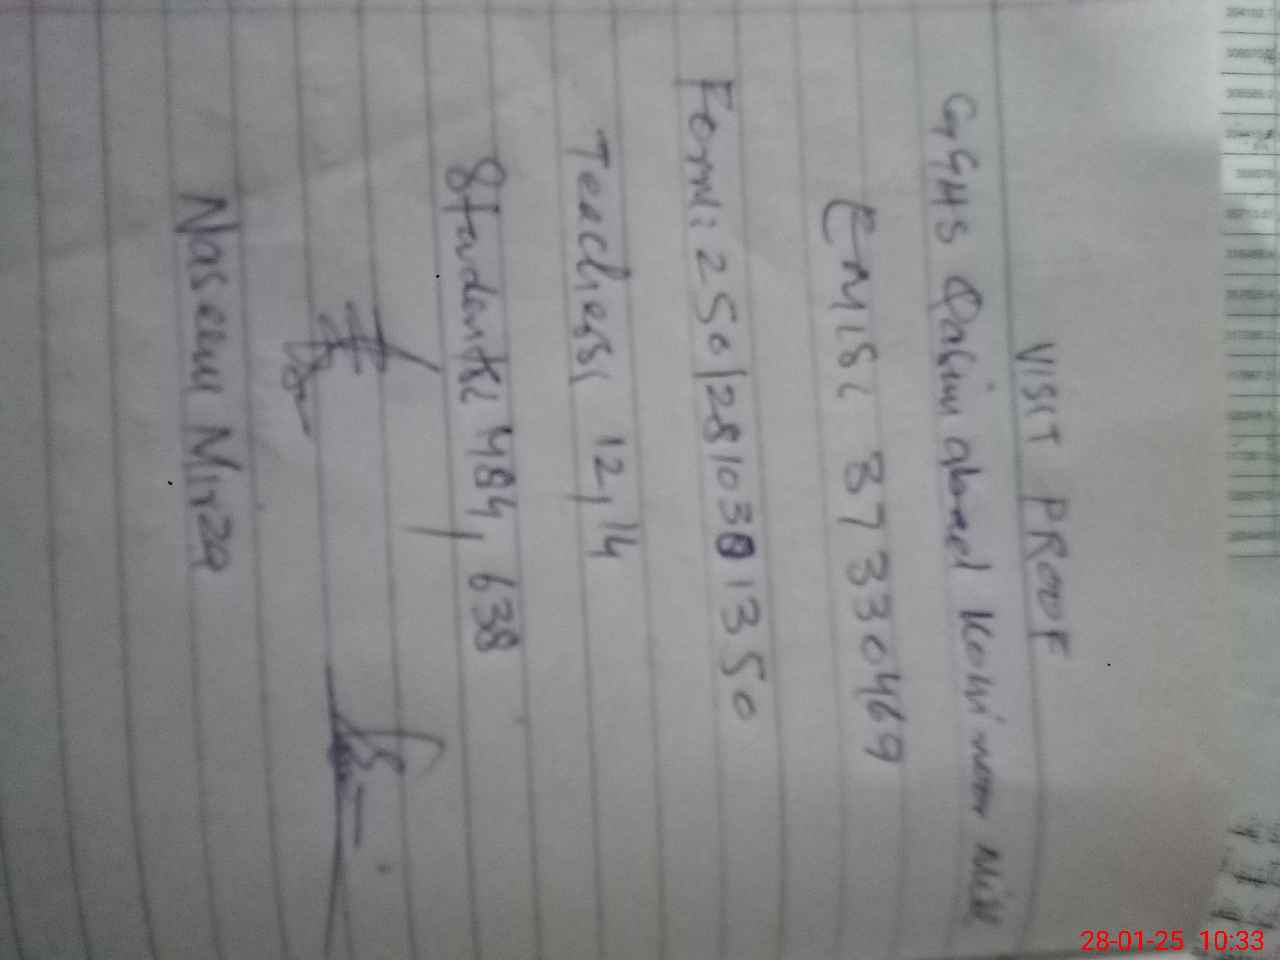 VISIT PROOF
GGHS Qasim ahmad Kohi noor Mill
EMIS: 37330469
Form: 25012810301350
Teachers: 12, 14
Students: 484, 638
Naseem Mirza
28-01-25 10:33